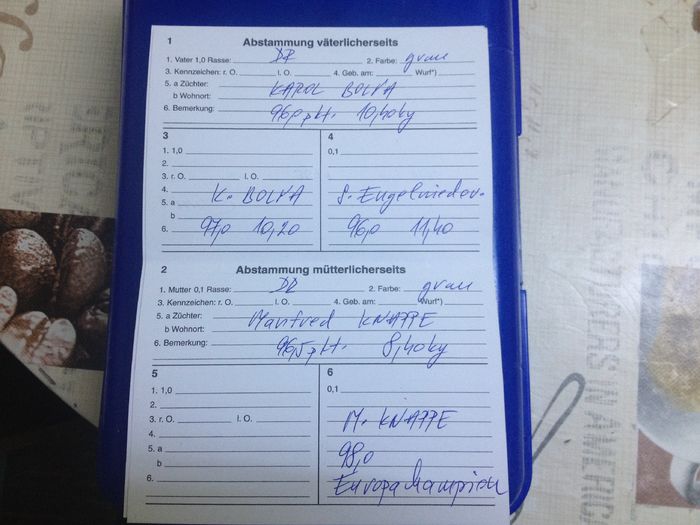 1 Abstammung väterlicherseits
1. Vater 1,0 Rasse: DR 2. Farbe: grau
3. Kennzeichen: r. O. l. O. 4. Geb. am: Wurf*)
5. a Züchter: KAROL BOLYA
b Wohnort:
6. Bemerkung: 96,0 pkt. 10,40 kg
3 4
1. 1,0 0,1
2.
3. r. O. l. O.
4.
5. a K. BOLYA S.
b
6. 97,0 10,20 96,0 11,40
2 Abstammung mütterlicherseits
1. Mutter 0,1 Rasse: DR 2. Farbe: grau
3. Kennzeichen: r. O. l. O. 4. Geb. am: Wurf*)
5. a Züchter: Manfred KNAPPE
b Wohnort:
6. Bemerkung: 96,5 pkt. 8,40 kg
5 6
1. 1,0 0,1
2.
3. r. O. l. O. M. KNAPPE
4.
5. a 98,0
b
6. Europachampion